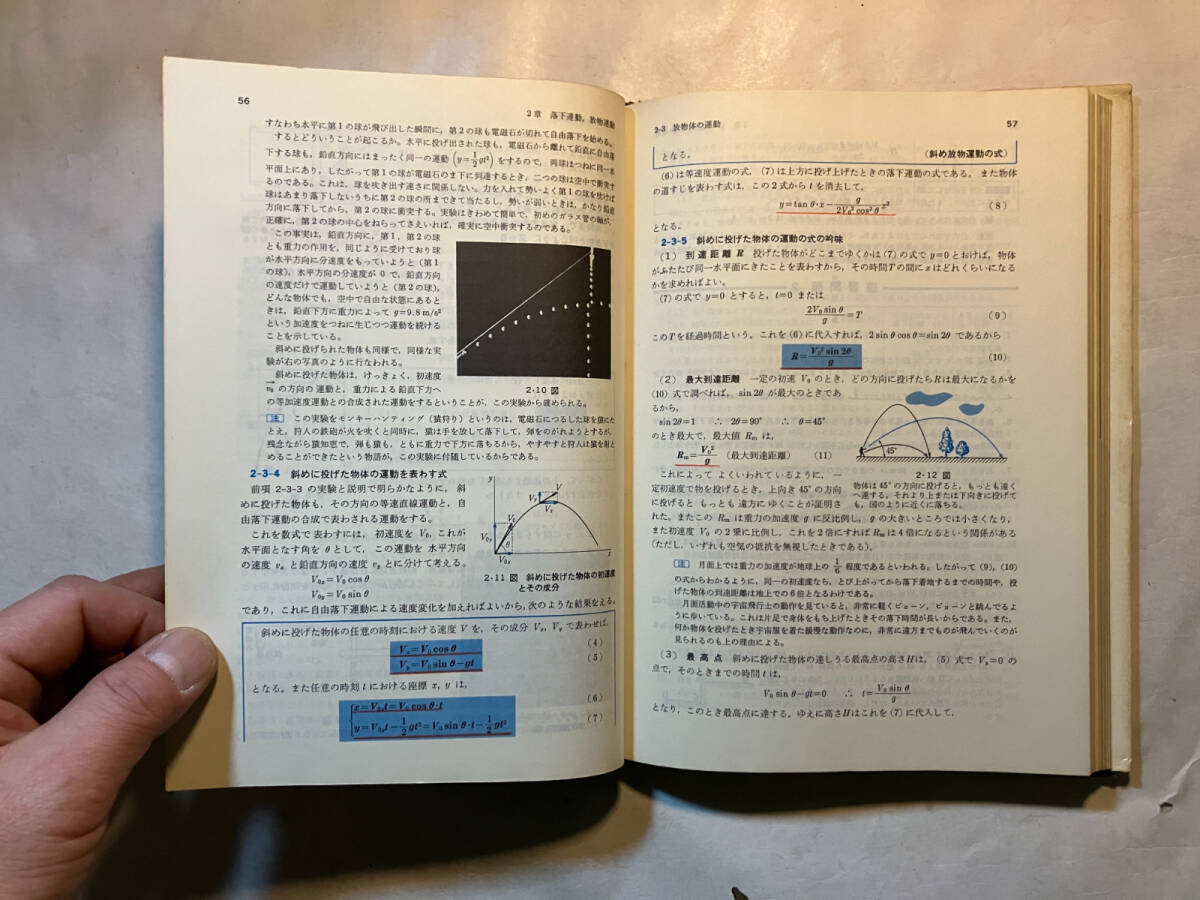 56
2章 落下運動，放物運動
すなわち水平に第1の球が飛び出した瞬間に，第2の球も電磁石が切れて自由落下を始める。
するとどういうことが起こるか。水平に投げ出された球も，電磁石から離れて鉛直に自由落
下する球も，鉛直方向にはまったく同一の運動 (y=1/2gt²) をするので，両球はつねに同一水
平面上にあり，したがって第1の球が電磁石のま下に到達するとき，二つの球は空中で衝突す
るのである。これは，球を吹き出す速さに関係しない。力を入れて勢いよく第1の球を吹けば
球はあまり落下しないうちに第2の球の所まできて当たるし，勢いが弱いときは，かなり鉛直
方向に落下してから，第2の球に衝突する。実験はきわめて簡単で，初めのガラス管の軸が，
正確に，第2の球の中心をねらってさえいれば，確実に空中衝突するのである。
この事実は，鉛直方向に，第1，第2の球
とも重力の作用を，同じように受けており球
が水平方向に分速度をもっていようと（第1
の球)，水平方向の分速度が0で，鉛直方向
の速度だけで運動していようと（第2の球)，
どんな物体でも，空中で自由な状態にあると
きは，鉛直下方に重力によって g=9.8m/s²
という加速度をつねに生じつつ運動を続ける
ことを示している。
斜めに投げられた物体も同様で，同様な実
験が右の写真のように行なわれる。
斜めに投げた物体は，けっきょく，初速度
v₀ の方向の運動と，重力による鉛直下方へ
の等加速度運動との合成された運動をするということが，この実験から確められる。
2-10 図
注 この実験をモンキーハンティング（猿狩り）というのは，電磁石につるした球を猿にた
とえ，狩人の鉄砲が火を吹くと同時に，猿は手を放して落下して，弾をのがれようとするが，
残念ながら猿知恵で，弾も猿も，ともに重力で下方に落ちるから，やすやすと狩人は猿を射と
めることができたという物語が，この実験に付随しているからである。
2-3-4 斜めに投げた物体の運動を表わす式
前項 2-3-3 の実験と説明で明らかなように，斜
めに投げた物体も，その方向の等速直線運動と，自
由落下運動の合成で表わされる運動をする。
これを数式で表わすには，初速度を V₀，これが
水平面となす角を θ として，この運動を 水平方向
の速度 vₓ と鉛直方向の速度 v_y とに分けて考える。
V₀ₓ=V₀ cos θ
V₀y=V₀ sin θ
y
V₀y
V₀
θ
V₀ₓ
Vy
V
Vₓ
x
2-11 図 斜めに投げた物体の初速度
とその成分
であり，これに自由落下運動による速度変化を加えればよいから，次のような結果をえる。
斜めに投げた物体の任意の時刻における速度 V を，その成分 Vₓ, V_y で表わせば，
Vₓ=V₀ cos θ (4)
V_y=V₀ sin θ−gt (5)
となる。また任意の時刻 t における座標 x, y は，
x=V₀ₓt=V₀ cos θ·t (6)
y=V₀yt−1/2gt²=V₀ sin θ·t−1/2gt² (7)
2-3 放物体の運動
57
となる。 (斜め放物運動の式)
(6)は等速度運動の式，(7)は上方に投げ上げたときの落下運動の式である。また物体
の道すじを表わす式は，この2式から t を消去して，
y=tan θ·x−g/(2V₀² cos² θ) x² (8)
となる。
2-3-5 斜めに投げた物体の運動の式の吟味
(1) 到達距離 R 投げた物体がどこまでゆくかは(7)の式で y=0 とおけば，物体
がふたたび同一水平面にきたことを表わすから，その時間 T の間に x はどれくらいになる
かを求めればよい。
(7)の式で y=0 とすると，t=0 または
2V₀ sin θ/g=T (9)
この T を経過時間という。これを(6)に代入すれば，2 sin θ cos θ=sin 2θ であるから
R=V₀² sin 2θ/g (10)
(2) 最大到達距離 一定の初速 V₀ のとき，どの方向に投げたら R は最大になるかを
(10)式で調べれば，sin 2θ が最大のときであ
るから，
sin 2θ=1 ∴ 2θ=90° ∴ θ=45°
のとき最大で，最大値 Rm は，
Rm=V₀²/g (最大到達距離) (11)
45°
2-12 図
物体は 45° の方向に投げると，もっとも遠く
へ達する。それより上または下向きに投げて
も，図のように近くに落ちる。
これによって よくいわれているように，一
定初速度で物を投げるとき，上向き 45° の方向
に投げると もっとも 遠方に ゆくことが証明さ
れた。またこの Rm は重力の加速度 g に反比例し，g の大きいところでは小さくなり，
また初速度 V₀ の2乗に比例し，これを2倍にすれば Rm は4倍になるという関係がある
(ただし，いずれも空気の抵抗を無視したときである)。
注 月面上では重力の加速度が地球上の 1/6 程度であるといわれる。したがって(9)，(10)
の式からわかるように，同一の初速度なら，とび上がってから落下着地するまでの時間や，投
げた物体の到達距離は地上での6倍となるわけである。
月面活動中の宇宙飛行士の動作を見ていると，非常に軽くピョーン，ピョーンと跳んでるよ
うに歩いている。これは片足で身体をもち上げたときその落下時間が長いからである。また，
何か物体を投げたとき宇宙服を着た緩慢な動作なのに，非常に遠方までものが飛んでいくのが
見られるのも上の理由による。
(3) 最高点 斜めに投げた物体の達しうる最高点の高さ H は，(5)式で V_y=0 の
点で，そのときまでの時間 t は，
V₀ sin θ−gt=0 ∴ t=V₀ sin θ/g
となり，このとき最高点に達する。ゆえに高さ H はこれを(7)に代入して，